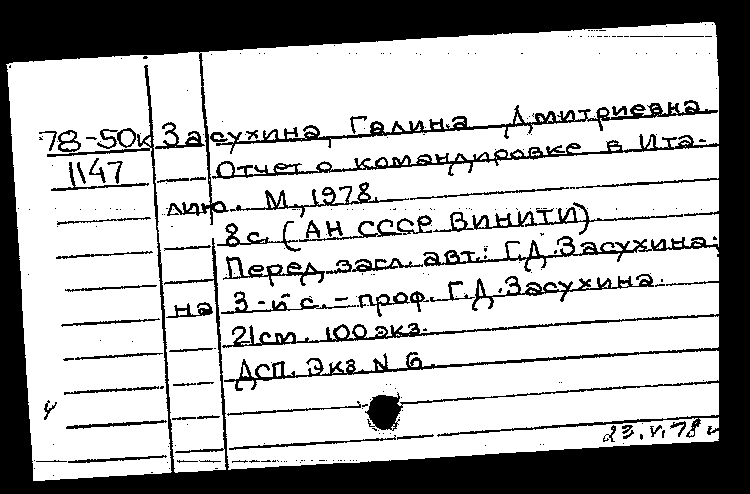 78-50к Засухина, Галина Дмитриевна.
1147 Отчет о командировке в Ита-
лию. М., 1978.
8 с. (АН СССР ВИНИТИ)
Перед загл. авт.: Г.Д. Засухина;
на 3-й с. - проф. Г.Д. Засухина.
21 см. 100 экз.
ДСП. Экз. N 6.
23.V.78